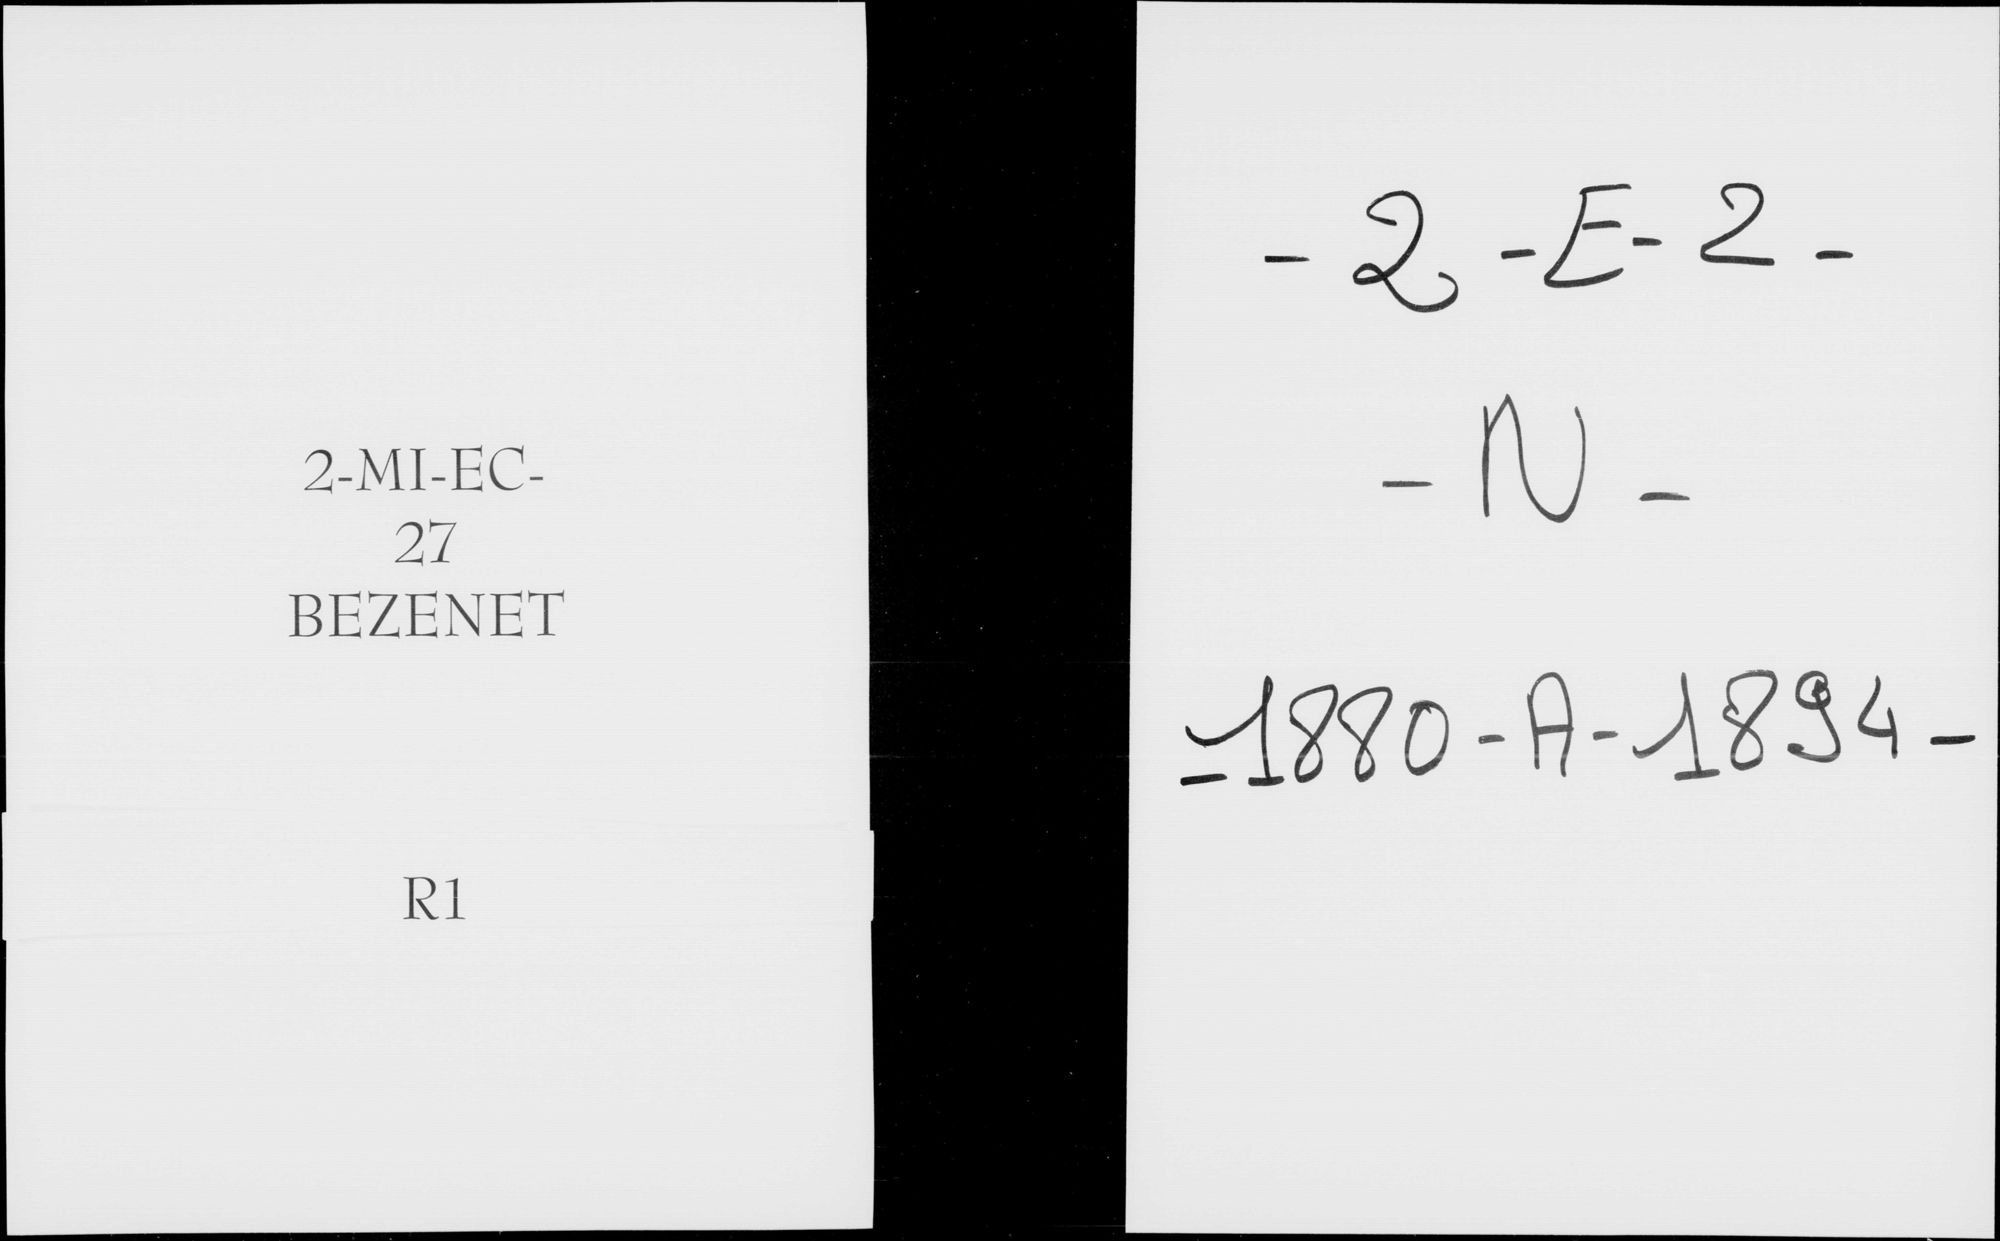 2-MI-EC-
27
BEZENET
R1
- 2 - E - 2 -
- N -
- 1880 - A - 1894 -